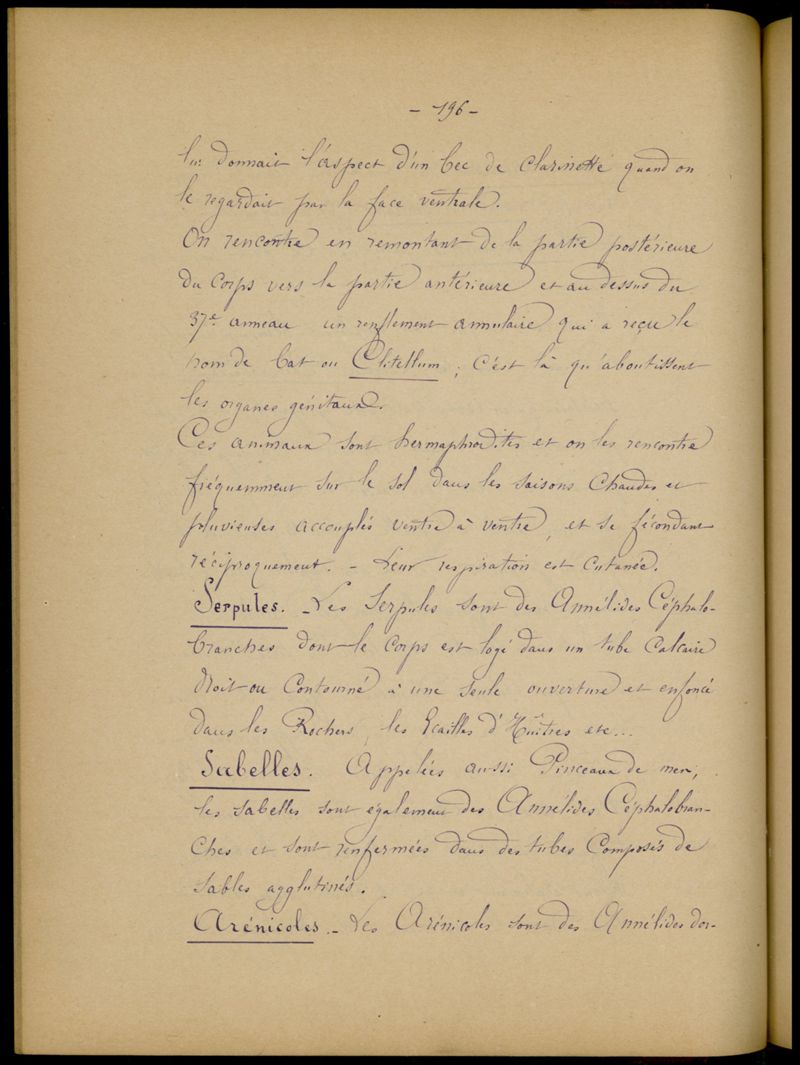 - 196 -
lui donnait l'aspect d'un bec de clarinette quand on
le regardait par la face ventrale.
On rencontre en remontant de la partie postérieure
du corps vers la partie antérieure et au dessus du
37e anneau un renflement annulaire qui a reçu le
nom de Bat ou Clitellum ; c'est là qu'aboutissent
les organes génitaux.
Ces animaux sont hermaphrodites et on les rencontre
fréquemment sur le sol dans les saisons chaudes et
pluvieuses accouplés ventre à ventre, et se fécondant
réciproquement. - Leur respiration est cutanée.
Serpules. - Les Serpules sont des Annélides Céphalo-
branches dont le corps est logé dans un tube calcaire
droit ou contourné à une seule ouverture et enfoncé
dans les Rochers, les Ecailles d'Huîtres etc...
Sabelles. Appelées aussi Pinceaux de mer,
les sabelles sont également des Annélides Céphalobran-
ches et sont renfermées dans des tubes composés de
sables agglutinés.
Arénicoles. - Les Arénicoles sont des Annélides dor-